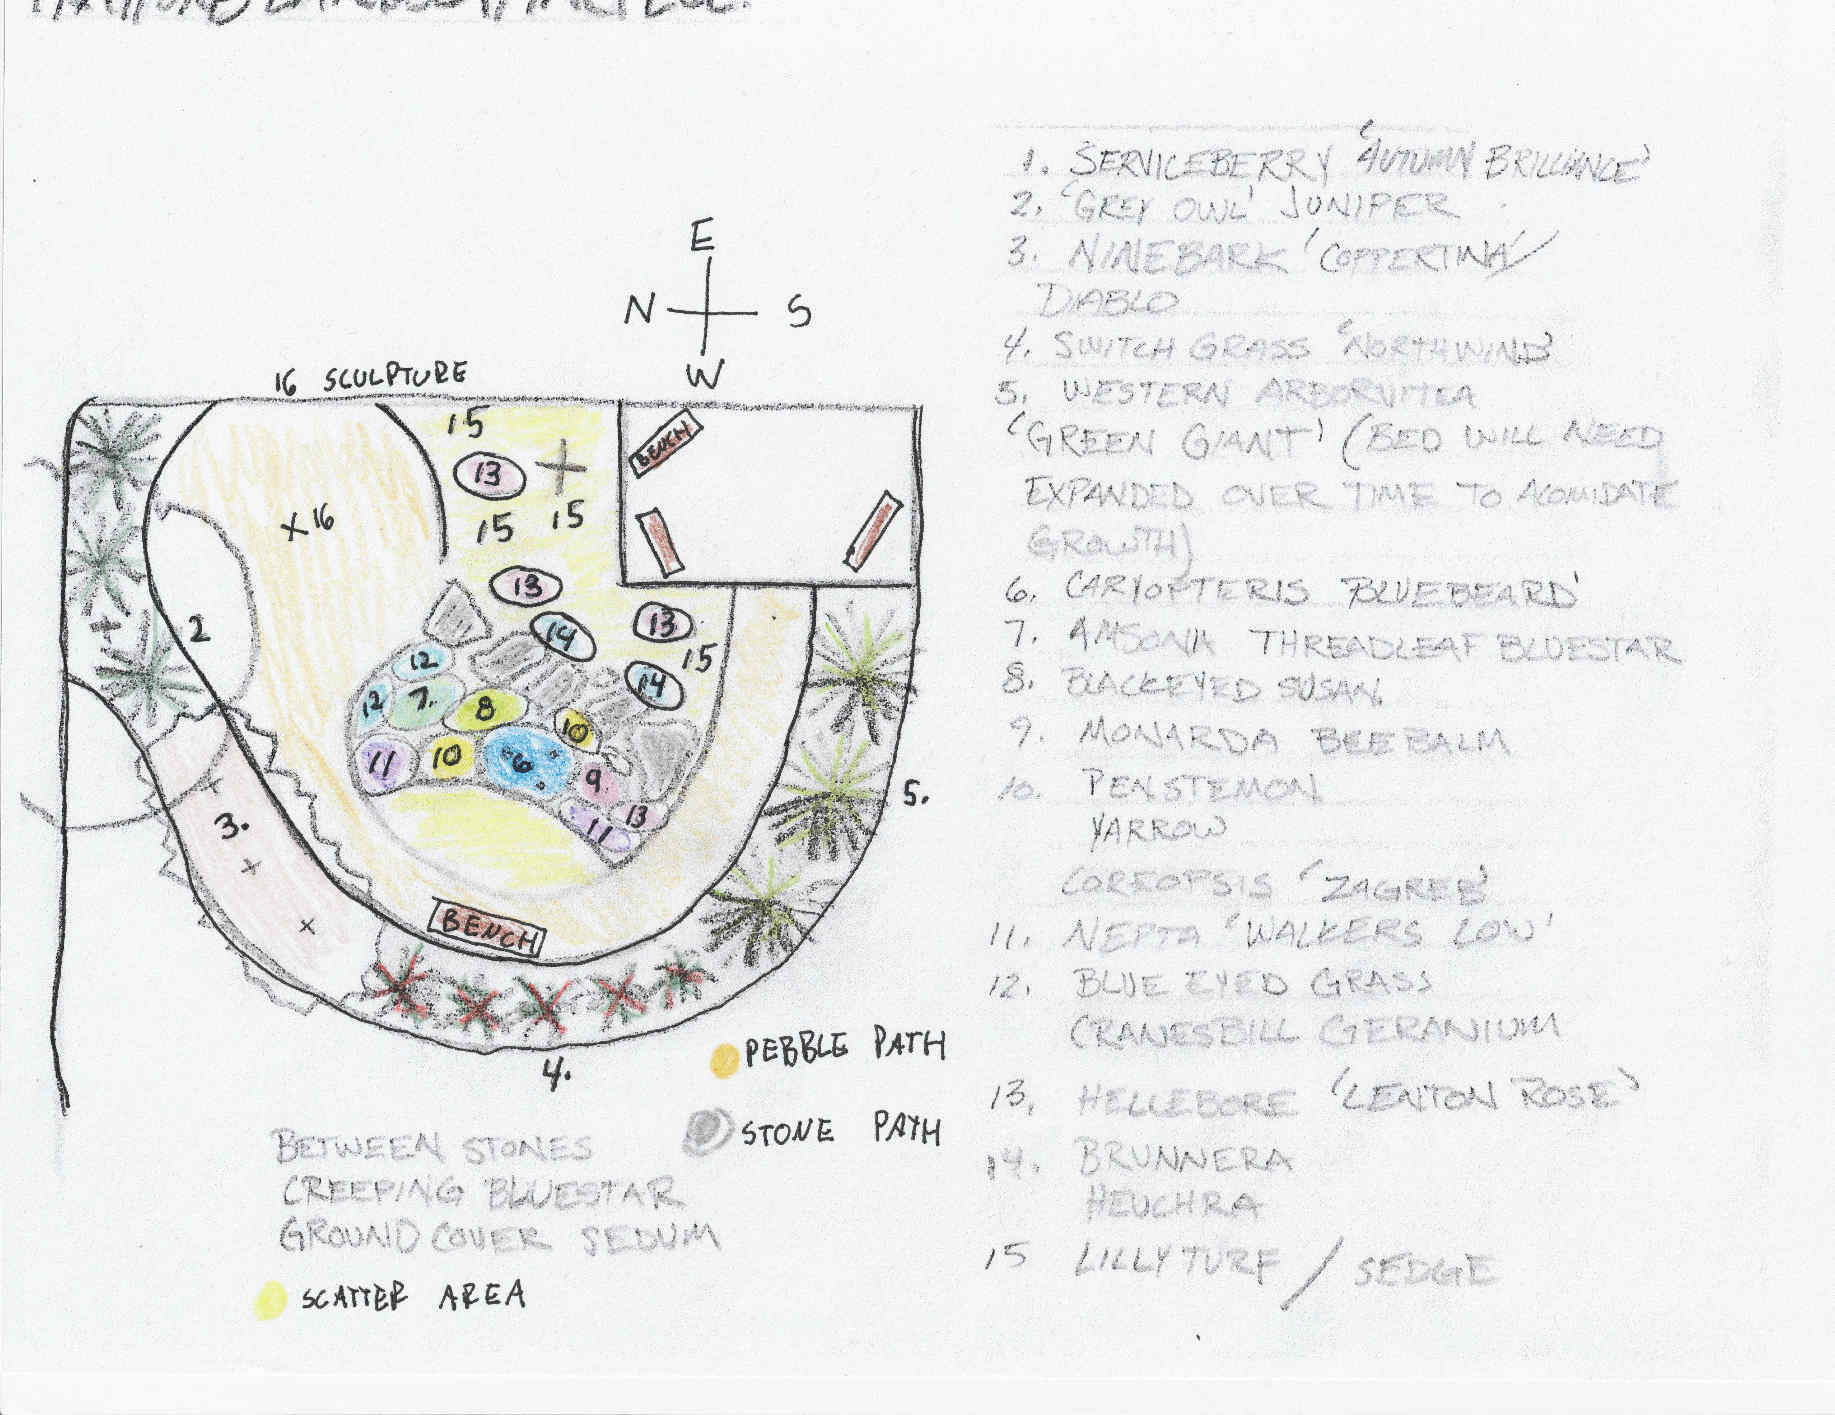 E
N S
W
16 SCULPTURE
15
13
BENCH
X16
15 15
13
14
13
2
15
12
14
12 7. 8
10
11 10 6
9.
13
11
3.
5.
BENCH
4.
PEBBLE PATH
STONE PATH
BETWEEN STONES
CREEPING BLUESTAR
GROUND COVER SEDUM
SCATTER AREA
1. SERVICEBERRY 'AUTUMN BRILLIANCE'
2. 'GREY OWL' JUNIPER
3. NINEBARK 'COPPERTINA'/
DIABLO
4. SWITCH GRASS 'NORTHWIND'
5. WESTERN ARBORVITEA
'GREEN GIANT' (BED WILL NEED
EXPANDED OVER TIME TO ACOMIDATE
GROWTH)
6. CARYOPTERIS 'BLUEBEARD'
7. AMSONIA THREADLEAF BLUESTAR
8. BLACKEYED SUSAN
9. MONARDA BEE BALM
10. PENSTEMON
YARROW
COREOPSIS 'ZAGREB'
11. NEPTA 'WALKERS LOW'
12. BLUE EYED GRASS
CRANESBILL GERANIUM
13, HELLEBORE 'LENTON ROSE'
14. BRUNNERA
HEUCHRA
15 LILLY TURF / SEDGE